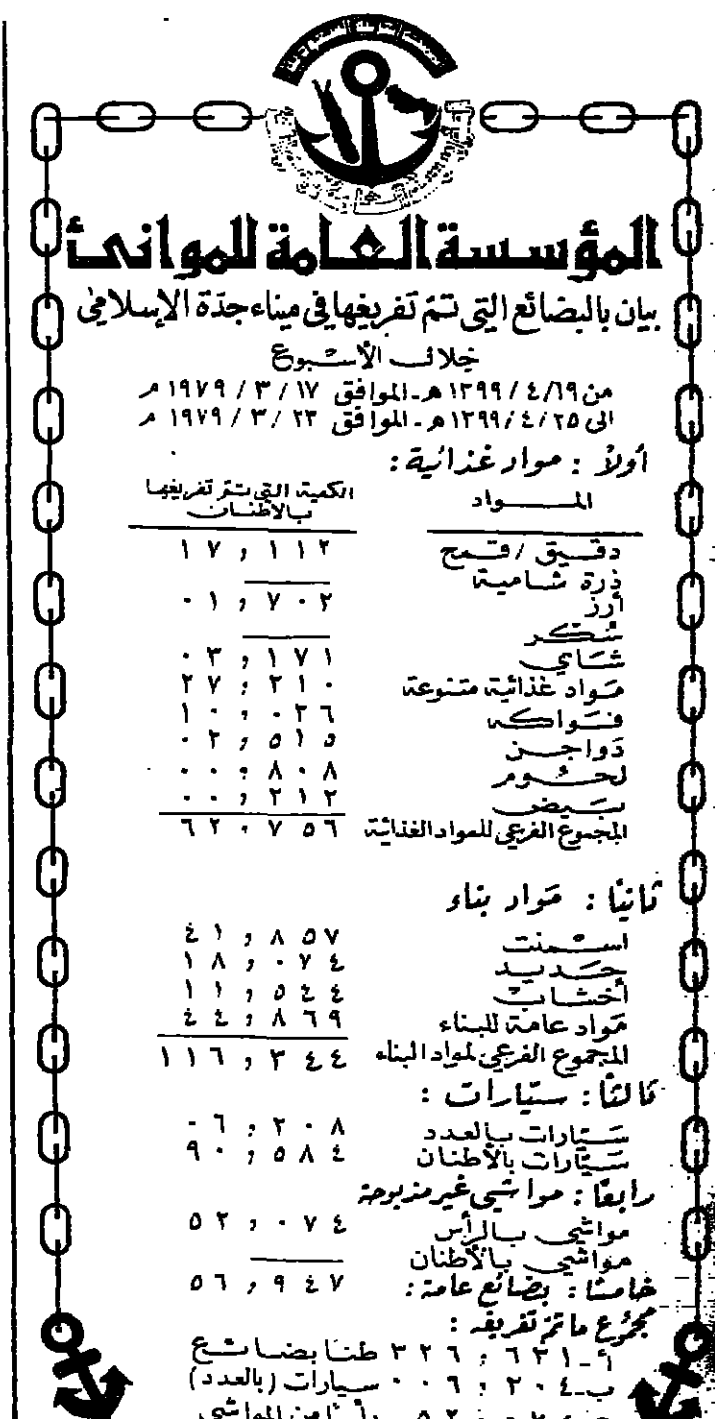 المؤسسة العامة للموانئ
بيان بالبضائع التي تم تفريغها في ميناء جدة الإسلامي
خلال الأسبوع
من ١٣٩٩/٤/١٩ هـ - الموافق ١٧ / ٣ / ١٩٧٩ م
الى ١٣٩٩/٤/٢٥ هـ - الموافق ٢٣ / ٣ / ١٩٧٩ م
أولاً : مواد غذائية :
المـــواد الكمية التي تم تفريغها بالأطنان
دقيق / قمح ١٧,١١٢
ذرة شامية ــــ
أرز ٠١,٧٠٢
سكر ــــ
شاي ٠٣,١٧١
مواد غذائية متنوعة ٢٧,٢١٠
فواكه ١٠,٠٢٦
دواجن ٠٢,٥١٥
لحوم ٠٠,٨٠٨
بيض ٠٠,٢١٢
المجموع الفرعي للمواد الغذائية ٦٢٠٧٥٦
ثانيًا : مواد بناء
اسمنت ٤١,٨٥٧
حديد ١٨,٠٧٤
أخشاب ١١,٥٤٤
مواد عامة للبناء ٤٤,٨٦٩
المجموع الفرعي لمواد البناء ١١٦,٣٤٤
ثالثًا : سيارات :
سيارات بالعدد ٠٦,٢٠٨
سيارات بالأطنان ٩٠,٥٨٤
رابعًا : مواشي غير مذبوحة
مواشي بالرأس ٥٢,٠٧٤
مواشي بالأطنان ــــ
خامسًا : بضائع عامة : ٥٦,٩٤٧
مجموع ما تم تفريغه :
أ - ٣٢٦,٦٣١ طنا بضائع
ب - ٠٠٦,٢٠٤ سيارات (بالعدد)